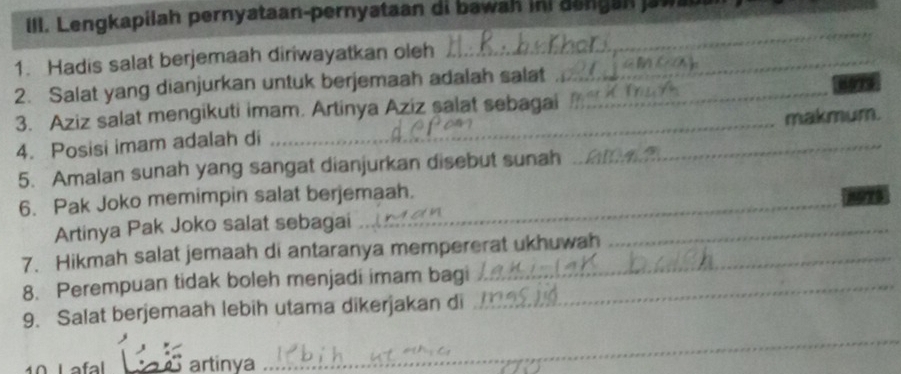 III. Lengkapilah pernyataan-pernyataan di bawah ini dengan
1. Hadis salat berjemaah diriwayatkan oleh H.R. bukhori
2. Salat yang dianjurkan untuk berjemaah adalah salat
3. Aziz salat mengikuti imam. Artinya Aziz salat sebagai makmum
4. Posisi imam adalah di depan makmum.
5. Amalan sunah yang sangat dianjurkan disebut sunah
6. Pak Joko memimpin salat berjemaah.
Artinya Pak Joko salat sebagai iman
7. Hikmah salat jemaah di antaranya mempererat ukhuwah
8. Perempuan tidak boleh menjadi imam bagi laki-lak
9. Salat berjemaah lebih utama dikerjakan di masjid
10. Lafal artinya lebih utama